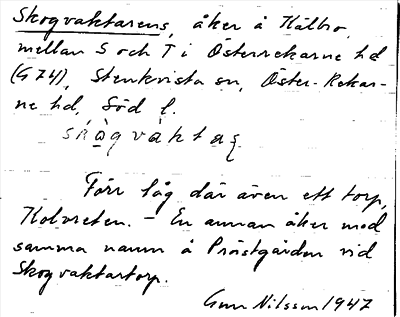 Skogvaktarens, åker å Kälbro,
mellan S och T i Österrekarne hd
(G 74), Stenkvista sn, Öster-Rekar-
ne hd, Söd l.
skògvàktaʂ
Förr låg där även ett torp,
Kolvreten. - En annan åker med
samma namn å Prästgården vid
Skogvaktartorp.
Gun Nilsson 1947